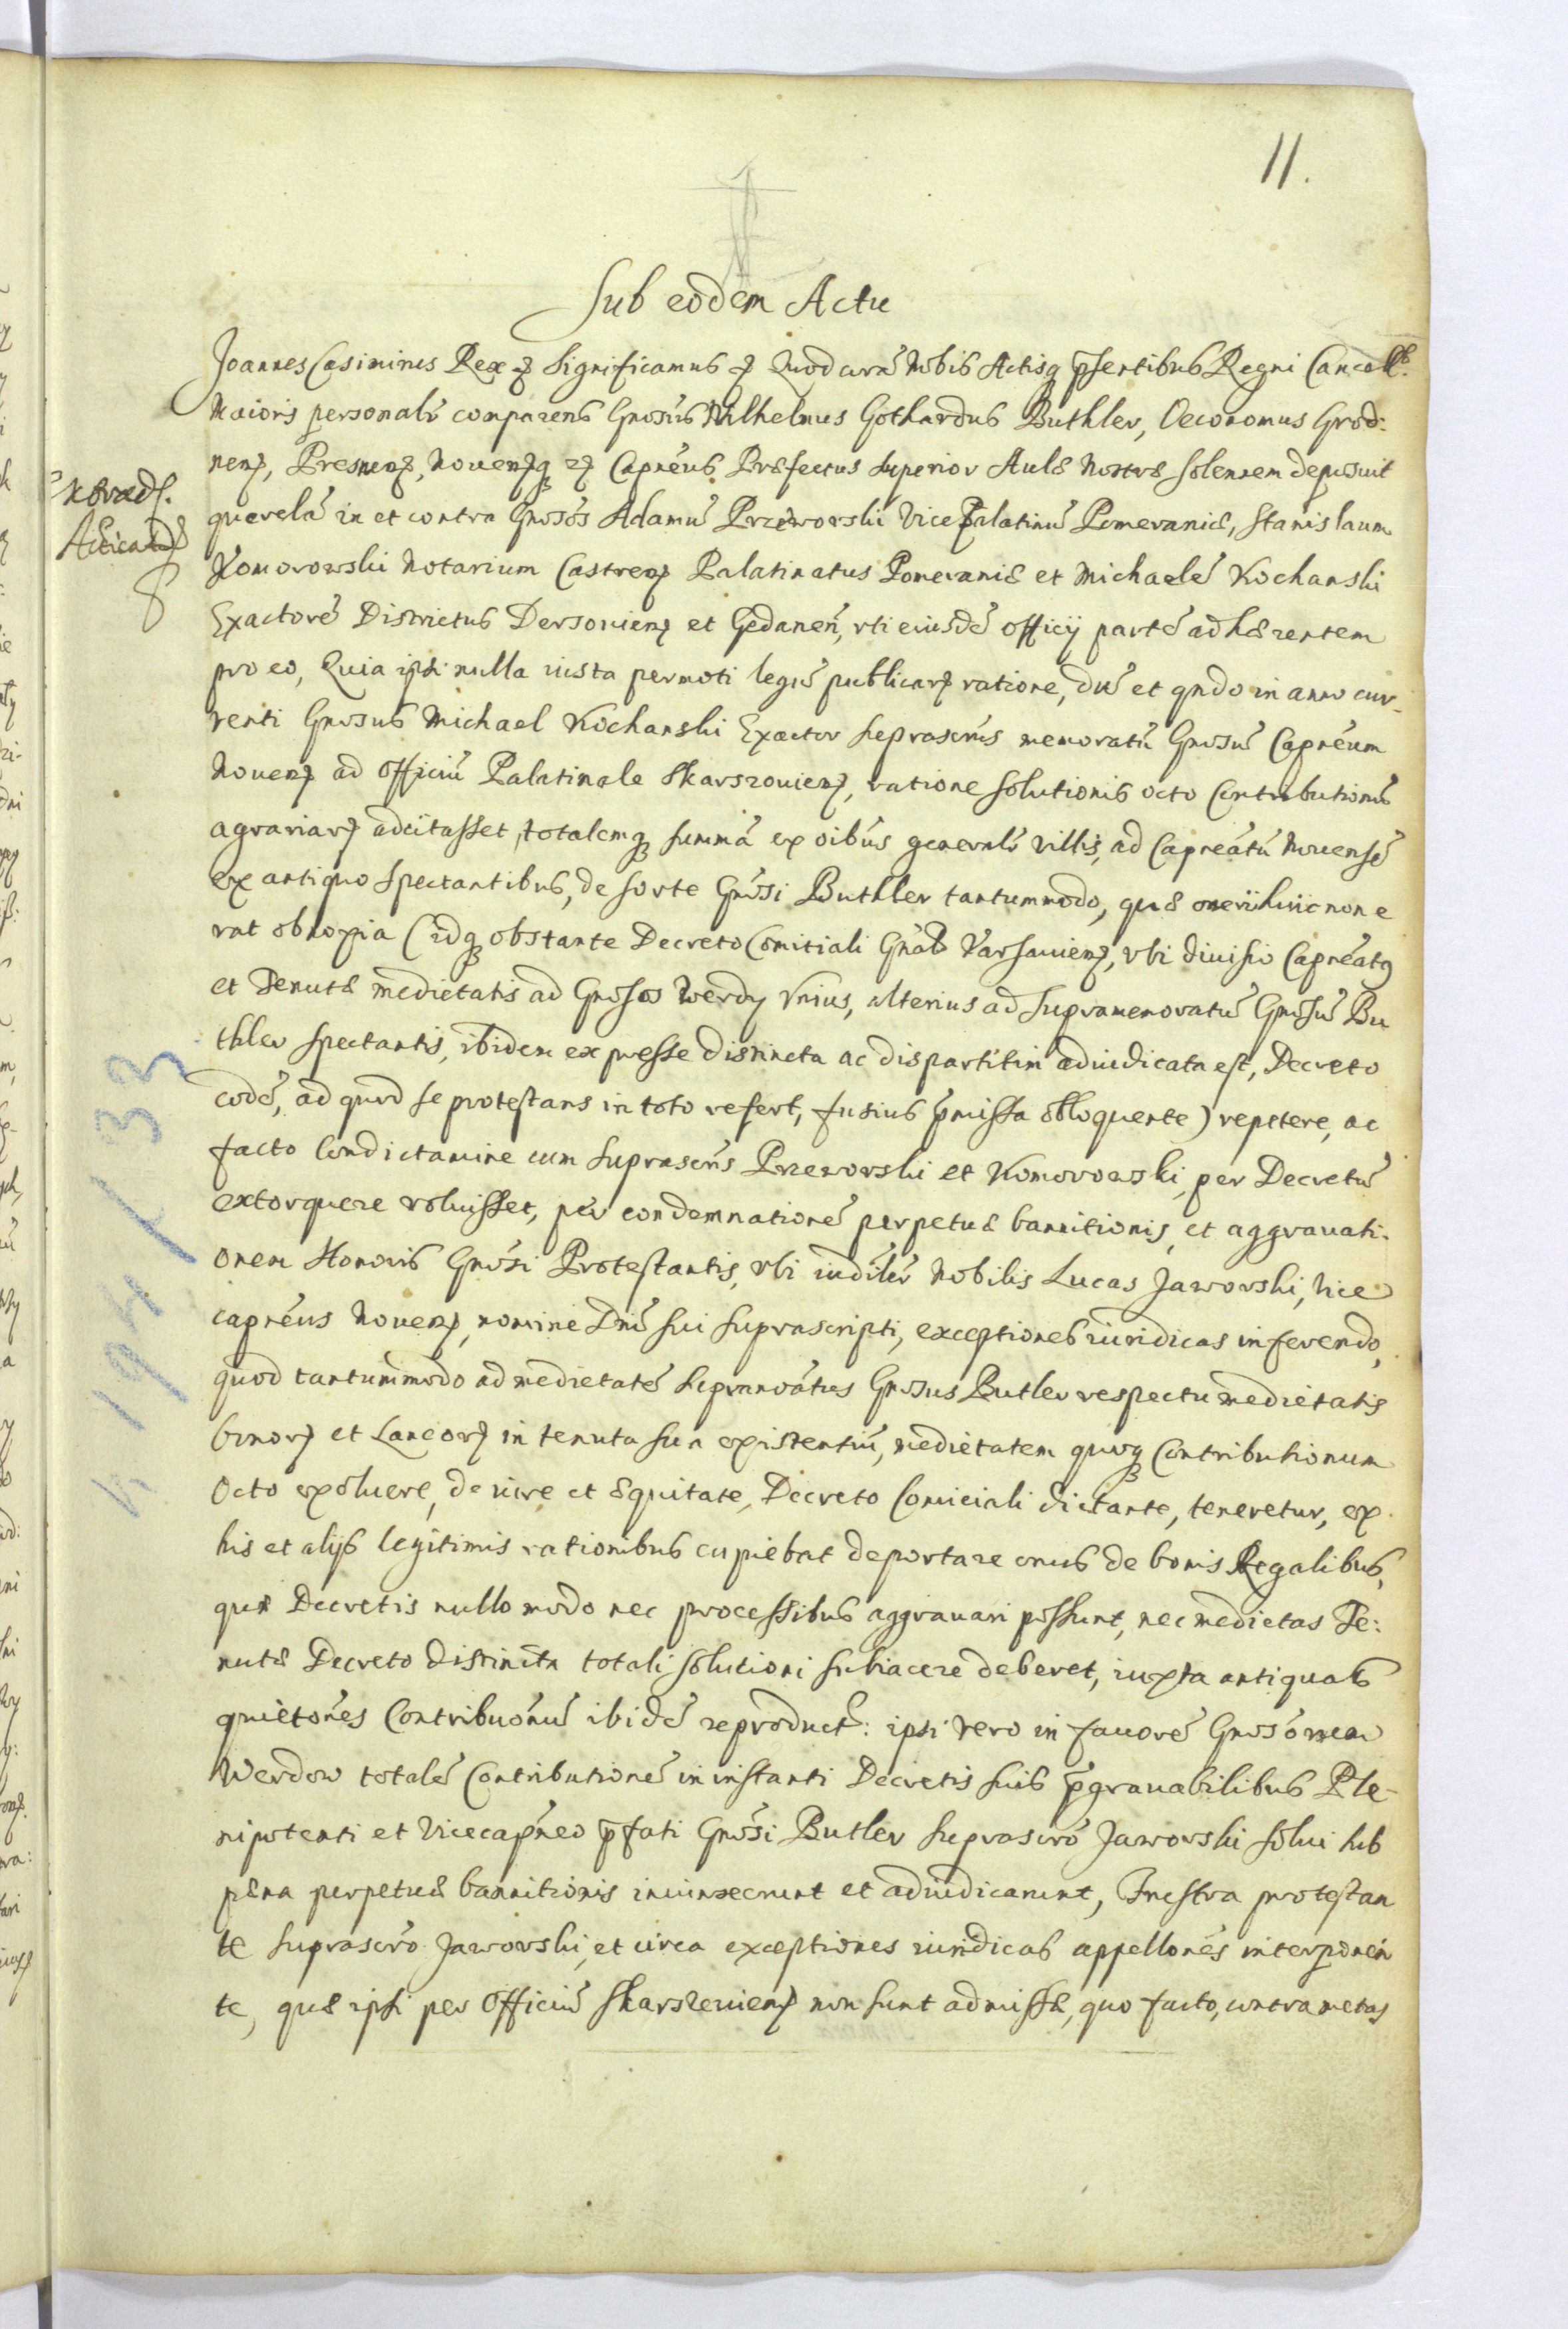 11.
Sub eodem Actu
Joannes Casimirus Rex ꝛ Significamus ꝛ Quod corã Nobis Actisq p̃sentibus Regni Cancell.
Maioris personalr̃ comparens Gnosus Wilhelmus Gothardus Buthler, Oeconomus Grod-
nenꝭ, Presnenꝭ, Nouenꝭq ꝛꝭ Capneũs Præfectus Superior Aulæ Nostræ solennem deposuit
querelã in et contra Gnosos Adamũ Przeworski Vice Palatinũ Pomeraniæ, Stanislaum
Komorowski Notarium Castrenꝭ Palatinatus Pomeraniæ et Michaelẽ Kochanski
Exactorẽ Districtus Dersouienꝭ et Gedanen̄, vti eiusdẽ officij partẽ adhærentem
pro eo, Quia ipsi nulla iusta permoti legũ publicarꝭ ratione, dũ et qndo in anno cur-
renti Gnosus Michael Kochanski Exactor suprascrus memoratũ Gnosũ Capneum
Nouenꝭ ad officiũ Palatinale Skarszouienꝭ, ratione solutionis octo Contributionũ
agrariarꝭ adcitasset, totalemq summã ex oĩbus generalr̃ villis, ad Capneatũ Nouensẽ
ex antiquo spectantibus, de sorte Gnosi Buthler tantummodo, quæ oneri huic non e
rat obnoxia (idq obstante Decreto Comitiali Gnali Varsauienꝭ, vbi diuisio Capneatq
et Tenutæ medietatis ad Gnosos Werdy vnius, alterius ad supramemoratũ Gnosũ Bu
thler spectantis, ibidem expresse distincta ac dispartitim adiudicata est, Decreto
eodẽ, ad quod se protestans in toto refert, fusius p̃missa obloquente) repetere, ac
facto Condictamine cum suprascris Przeworski et Komorowski, per Decretũ
extorquere voluisset, per condemnationẽ perpetuæ bannitionis, et aggrauati-
onem Honoris Gnosi Protestantis, vbi iudilr̃ Nobilis Lucas Jaworski, Vice
capneus Nouenꝭ, nomine Dnĩ sui suprascripti, exceptiones iuridicas inferendo,
quod tantummodo ad medietatẽ supranoatus Gnosus Butler respectu medietatis
bonorꝭ et Laneorꝭ in tenuta sua existentiũ, medietatem quoq Contributionum
Octo exoluere, de iure et æquitate, Decreto Comiciali dictante, teneretur, ex
his et alijs legitimis rationibus cupiebat deportare onus de bonis Regalibus,
quæ Decretis nullo modo nec processibus aggrauari possunt, nec medietas Te:
nutæ Decreto distincta totali solutioni subiacere deberet, iuxta antiquas
quietoñes Contribuonũ ibidẽ reproduct: ipsi vero in fauorẽ Gnosorum
Werdow totalẽ Contributionẽ in instanti Decretis suis p̃grauabilibus Ple-
nipotenti et Vicecapneo p̃fati Gnosi Butler suprascro Jaworski solui sub
pæna perpetuæ bannitionis iniunxerunt et adiudicarunt, Frustra protestan
te suprascro Jaworski, et circa exceptiones iuridicas appellones interponen
te, quæ ipsi per Officiũ Skarszeuienꝭ non sunt admissæ, quo facto, contra metas
Actica
h 194 / 33